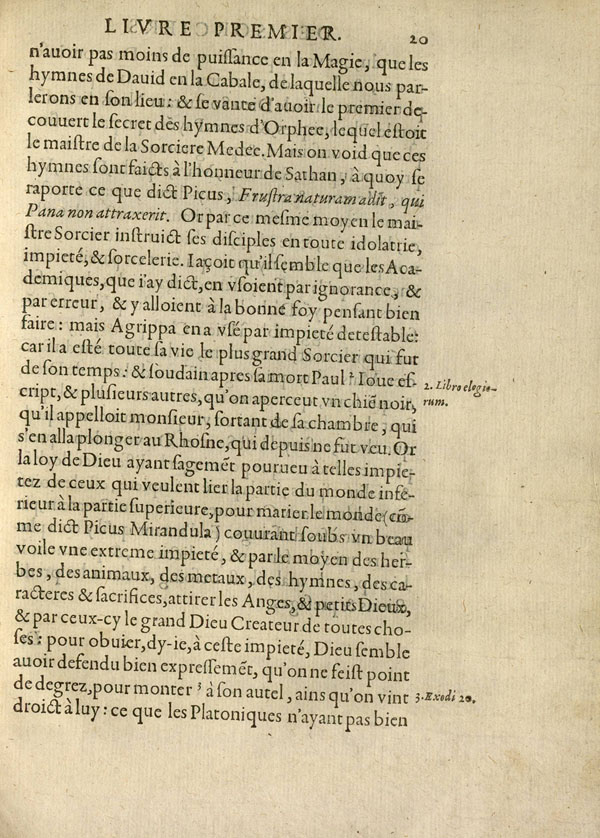 LIVRE PREMIER.
20
n'auoir pas moins de puiſſance en la Magie, que les
hymnes de Dauid en la Cabale, de laquelle nous par-
lerons en ſon lieu: & ſe vante d'auoir le premier de-
couuert le ſecret des hymnes d'Orphee, lequel eſtoit
le maiſtre de la Sorciere Medee. Mais on void que ces
hymnes ſont faicts à l'honneur de Sathan, à quoy ſe
raporte ce que dict Picus, Fruſtra naturam adit, qui
Pana non attraxerit. Or par ce meſme moyen le mai-
ſtre Sorcier inſtruict ſes diſciples en toute idolatrie,
impieté, & ſorcelerie. Iaçoit qu'il ſemble que les Aca-
demiques, que i'ay dict, en vſoient par ignorance, &
par erreur, & y alloient à la bonne foy penſant bien
faire: mais Agrippa en a vſé par impieté deteſtable:
car il a eſté toute ſa vie le plus grand Sorcier qui fut
de ſon temps: & ſoudain apres ſa mort Paul ² Ioue eſ-
cript, & pluſieurs autres, qu'on aperceut vn chiẽ noir,
qu'il appelloit monſieur, ſortant de ſa chambre, qui
s'en alla plonger au Rhoſne, qui depuis ne fut veu. Or
la loy de Dieu ayant ſagemẽt pourueu à telles impie-
tez de ceux qui veulent lier la partie du monde infe-
rieur à la partie ſuperieure, pour marier le monde (cõ-
me dict Picus Mirandula) couurant ſoubs vn beau
voile vne extreme impieté, & par le moyen des her-
bes, des animaux, des metaux, des hymnes, des ca-
racteres & ſacrifices, attirer les Anges, & petits Dieux,
& par ceux-cy le grand Dieu Createur de toutes cho-
ſes: pour obuier, dy-ie, à ceſte impieté, Dieu ſemble
auoir defendu bien expreſſemẽt, qu'on ne feiſt point
de degrez, pour monter ³ à ſon autel, ains qu'on vint
droict à luy: ce que les Platoniques n'ayant pas bien
2. Libro elogio-
rum.
3. Exodi 20.